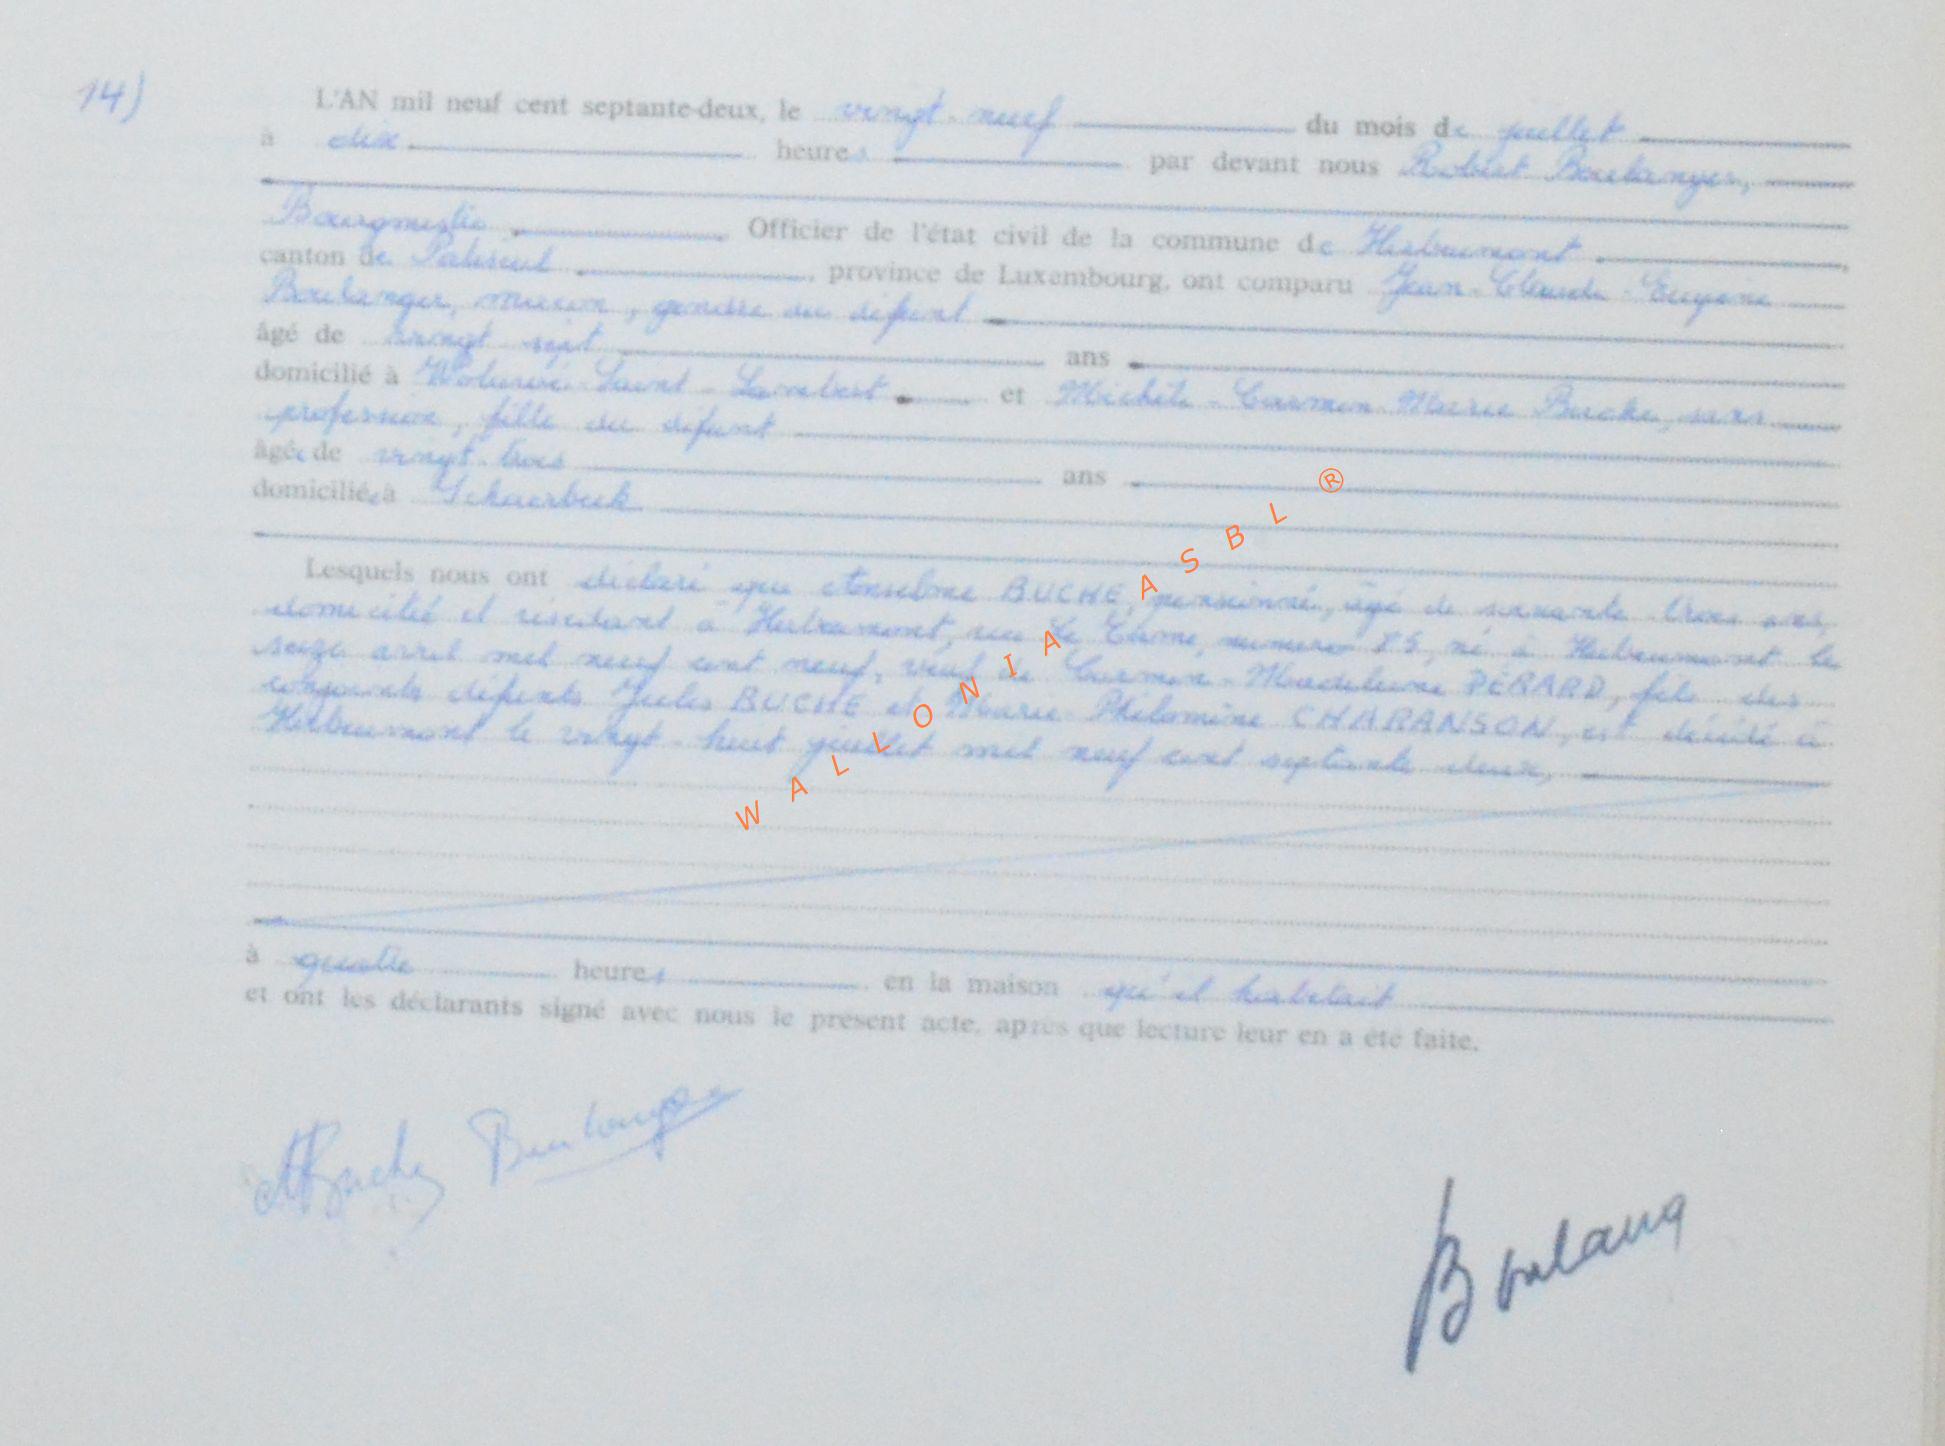 14)
L'AN mil neuf cent septante-deux, le vingt-neuf du mois de juillet
à dix heures par devant nous Robert Boulanger,
Bourgmestre Officier de l'état civil de la commune de Herbeumont
canton de Paliseul, province de Luxembourg, ont comparu Jean-Claude-Eugène
Boulanger, maçon, gendre du défunt
âgé de vingt sept ans
domicilié à Woluwé-Saint-Lambert et Michèle-Carmen-Marie Buche, sans
profession, fille du défunt
âgée de vingt-trois ans
domiciliée à Schaerbeek
Lesquels nous ont déclaré que Anselme BUCHE, pensionné, âgé de soixante-trois ans,
domicilié et résidant à Herbeumont, rue Le Terme, numéro 85, né à Herbeumont le
seize avril mil neuf cent neuf, veuf de Carmen-Madeleine PÉRARD, fils des
conjoints défunts Jules BUCHE et Marie-Philomène CHARANSON, est décédé à
Herbeumont le vingt-huit juillet mil neuf cent septante deux,
à quatre heures en la maison qu'il habitait
et ont les déclarants signé avec nous le présent acte, après que lecture leur en a été faite.
Buche Boulanger
Boulang
WALLONIA ASBL ®